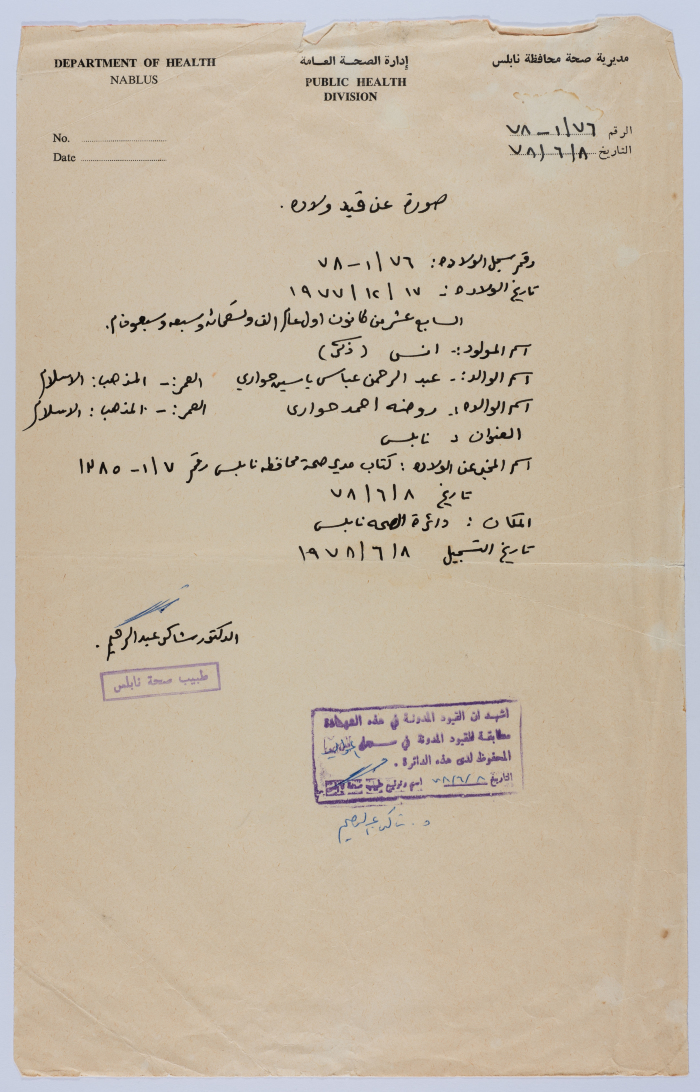 DEPARTMENT OF HEALTH
NABLUS
إدارة الصحة العامة
PUBLIC HEALTH
DIVISION
مديرية صحة محافظة نابلس
No. ........................
Date ........................
الرقم ٧٦/١ــ٧٨
التاريخ ٧٨/٦/٨
صورة عن قيد ولاده .
رقم سجل الولاده : ٧٦/١ــ٧٨
تاريخ الولاده :ـ ١٧/١٢/١٩٧٧
السابع عشر من كانون اول عام الف وتسعمائه وسبعه وسبعون م.
اسم المولود :ـ انس (ذكر)
اسم الوالد :ـ عبد الرحمن عباس ياسين حواري العمر :ـ المذهب : الاسلام
اسم الوالده :ـ روضه احمد حواري العمر :ـ المذهب : الاسلام
العنوان : نابلس
اسم المخبر عن الولاده : كتاب مدير صحة محافظة نابلس رقم ٧/١ــ١٢٨٥
تاريخ ٧٨/٦/٨
المكان : دائرة الصحه نابلس
تاريخ التسجيل ١٩٧٨/٦/٨
الدكتور شاكر عبد الرحيم .
طبيب صحة نابلس
اشهد ان القيود المدونة في هذه الشهادة
مطابقة للقيود المدونة في سجل
المحفوظ لدى هذه الدائرة .
التاريخ ٧٨/٦/٨ اسم وتوقيع طبيب صحة نابلس
د. شاكر عبد الرحيم